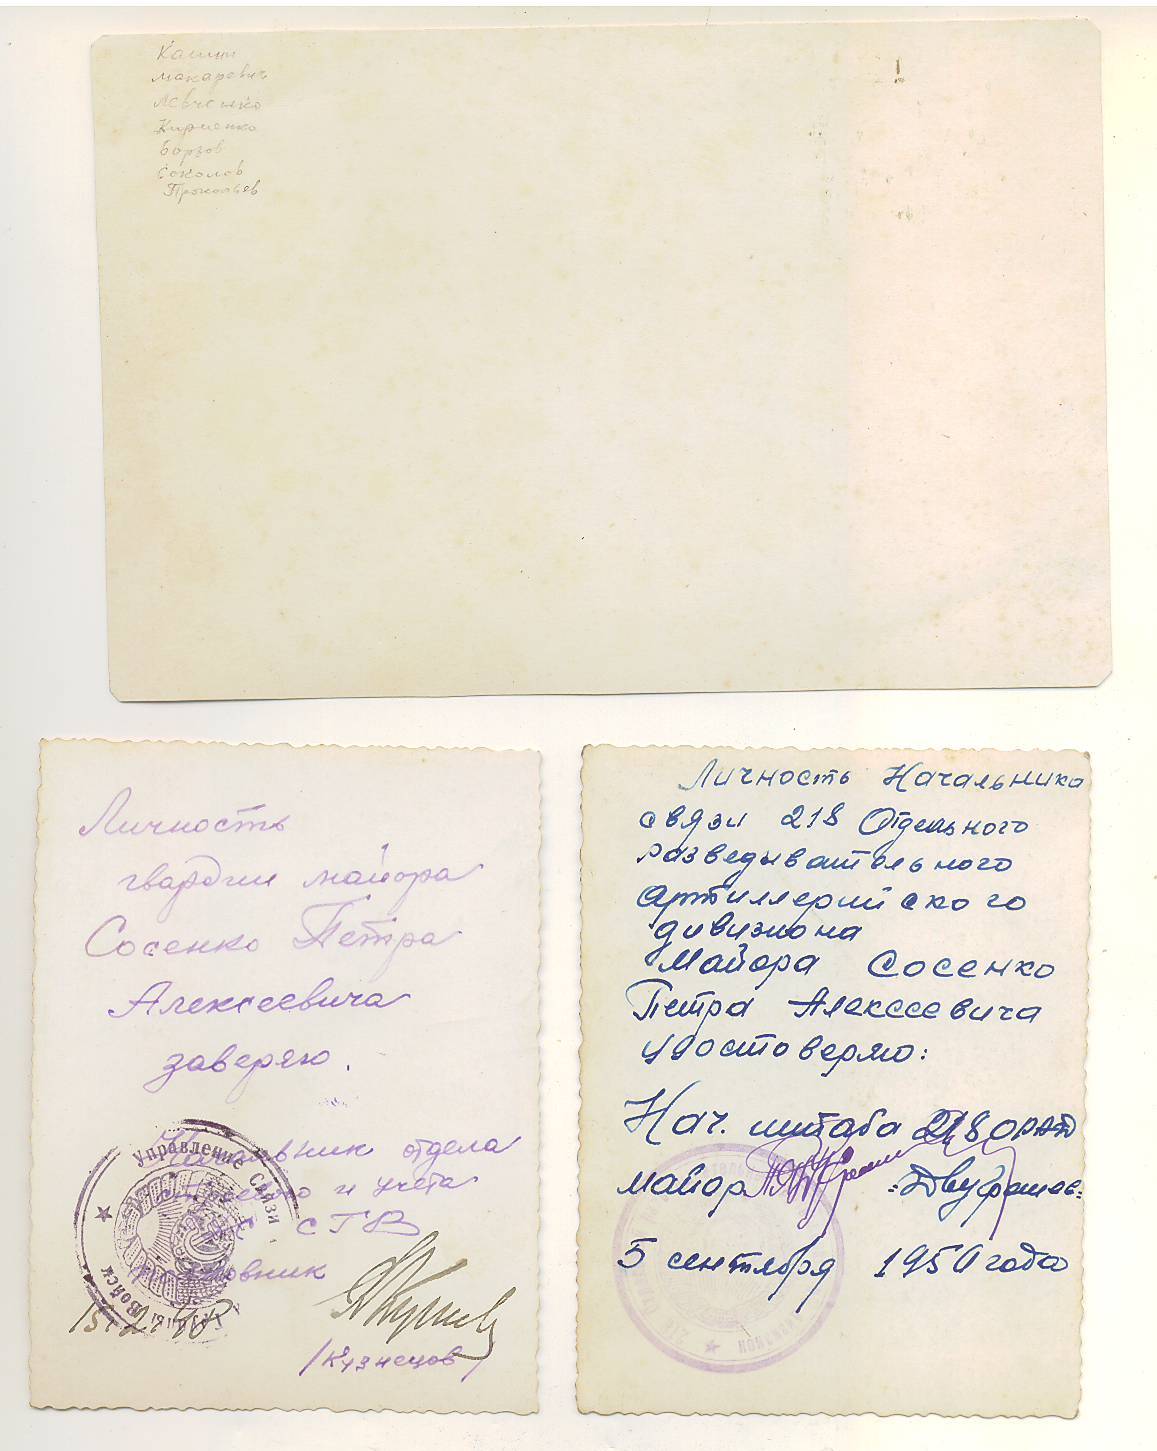 Калин
Макаревич
Левченко
Кириенко
Борзов
Соколов
Прокопьев
Личность
гвардии майора
Сосенко Петра
Алексеевича
заверяю.
Начальник отдела
и учета
СГВ
Полковник
/Кузнецов/
Управление Связи
Войск
Личность Начальника
связи 218 Отдельного
разведывательного
артиллерийского
дивизиона
Майора Сосенко
Петра Алексеевича
удостоверяю:
Нач. штаба 218 ОРАД
майор
5 сентября 1950 года